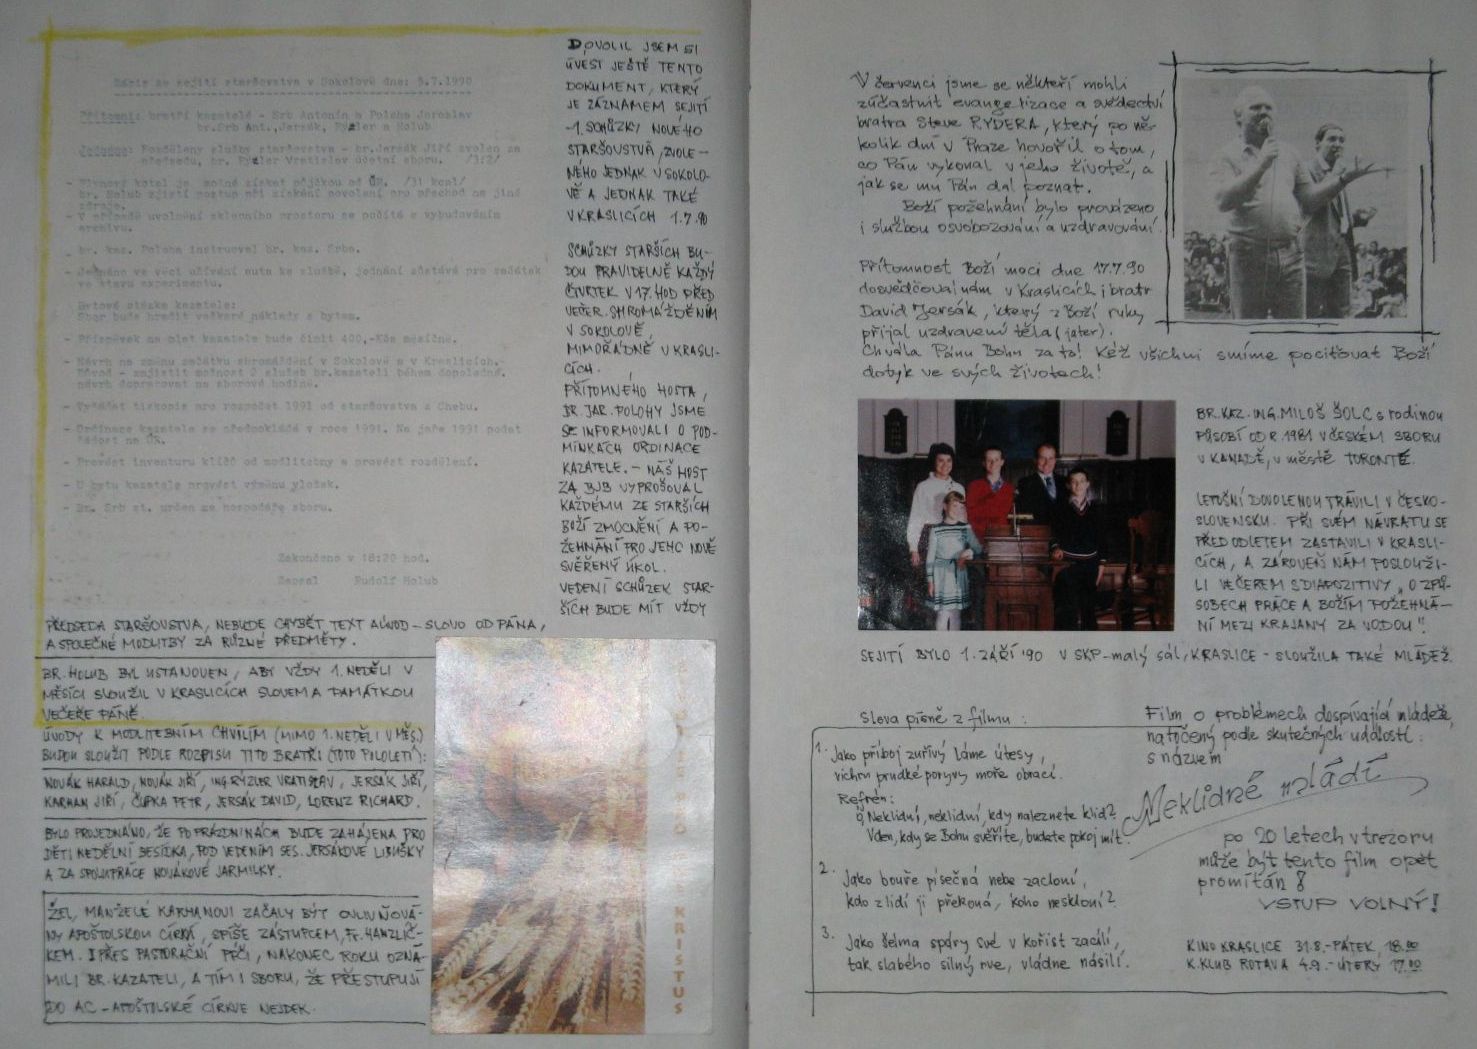 Zápis ze sejití staršovstva v Sokolově dne: 5.7.1990
Přítomni: bratři kazatelé - Srb Antonín a Poloha Jaroslav
br.Srb Ant.,Jersák, Ryzler a Holub
Jednáno: Rozděleny služby staršovstva - br.Jersák Jiří zvolen za
předsedu, br. Ryzler Vratislav účetní sboru. /3:2/
- Plynový kotel je možné získat půjčkou od ÚR. /31 kcal/
br. Holub zjistí postup při získání povolení pro přechod na jiné
zdroje.
- V případě uvolnění sklepního prostoru se počítá s vybudováním
archivu.
- br. kaz. Poloha instruoval br. kaz. Srba.
- Jednáno ve věci užívání auta ke službě, jednání zůstává pro začátek
ve stavu experimentu.
- Bytová otázka kazatele:
Sbor bude hradit veškeré náklady s bytem.
- Příspěvek na plat kazatele bude činit 400,-Kčs měsíčně.
- Návrh na změnu začátku shromáždění v Sokolově a v Kraslicích.
Důvod - zajistit možnost 2 služeb br.kazateli během dopoledne.
návrh dopracovat na sborové hodině.
- Vyžádat tiskopis pro rozpočet 1991 od staršovstva z Chebu.
- Ordinace kazatele se předpokládá v roce 1991. Na jaře 1991 podat
žádost na ÚR.
- Provést inventuru klíčů od modlitebny a provést rozdělení.
- U bytu kazatele provést výměnu vložek.
- Br. Srb st. určen za hospodáře sboru.
Zakončeno v 18:20 hod.
Zapsal Rudolf Holub
DOVOLIL JSEM SI
UVÉST JEŠTĚ TENTO
DOKUMENT, KTERÝ
JE ZÁZNAMEM SEJITÍ
-1. SCHŮZKY NOVÉHO
STARŠOVSTVA, ZVOLE-
NÉHO JEDNAK V SOKOLO-
VĚ A JEDNAK TAKÉ
V KRASLICÍCH 1.7.90
SCHŮZKY STARŠÍCH BU-
DOU PRAVIDELNĚ KAŽDÝ
ČTVRTEK V 17.HOD PŘED
VEČER. SHROMÁŽDĚNÍM
V SOKOLOVĚ,
MIMOŘÁDNĚ V KRASLI-
CÍCH.
PŘÍTOMNÉHO HOSTA,
BR. JAR. POLOHY JSME
SE INFORMOVALI O POD-
MÍNKÁCH ORDINACE
KAZATELE. - NÁŠ HOST
ZA BJB VYPROŠOVAL
KAŽDÉMU ZE STARŠÍCH
BOŽÍ ZMOCNĚNÍ A PO-
ŽEHNÁNÍ PRO JEHO NOVĚ
SVĚŘENÝ ÚKOL.
VEDENÍ SCHŮZEK STAR-
ŠÍCH BUDE MÍT VŽDY
PŘEDSEDA STARŠOVSTVA, NEBUDE CHYBĚT TEXT A ÚVOD - SLOVO OD PÁNA,
A SPOLEČNÉ MODLITBY ZA RŮZNÉ PŘEDMĚTY.
BR. HOLUB BYL USTANOVEN, ABY VŽDY 1. NEDĚLI V
MĚSÍCI SLOUŽIL V KRASLICÍCH SLOVEM A PAMÁTKOU
VEČEŘE PÁNĚ.
ÚVODY K MODLITEBNÍM CHVÍLÍM (MIMO 1. NEDĚLI V MĚS.)
BUDOU SLOUŽIT PODLE ROZPISU TITO BRATŘI (TOTO POLOLETÍ):
NOVÁK HARALD, NOVÁK JIŘÍ, ING RYZLER VRATISLAV, JERSÁK JIŘÍ,
KARMAN JIŘÍ, ČUPKA PETR, JERSÁK DAVID, LORENZ RICHARD.
BYLO PROJEDNÁNO, ŽE PO PRÁZDNINÁCH BUDE ZAHÁJENA PRO
DĚTI NEDĚLNÍ BESÍDKA, POD VEDENÍM SES. JERSÁKOVÉ LIBUŠKY
A ZA SPOLUPRÁCE NOVÁKOVÉ JARMILKY.
ŽEL, MANŽELÉ KARMANOVI ZAČALI BÝT OVLIVŇOVÁ-
NY APOŠTOLSKOU CÍRKVÍ, SPÍŠE ZÁSTUPCEM, FR. HANZLÍČ-
KEM. I PŘES PASTORAČNÍ PÉČI, NAKONEC ROKU OZNÁ-
MILI BR. KAZATELI, A TÍM I SBORU, ŽE PŘESTUPUJÍ
DO AC - APOŠTOLSKÉ CÍRKVE NEJDEK.
KRISTUS
V červenci jsme se někteří mohli
zúčastnit evangelizace a svědectví
bratra Steve RYDERA, který po ně-
kolik dní v Praze hovořil o tom,
co Pán vykonal v jeho životě, a
jak se mu Pán dal poznat.
Boží požehnání bylo provázeno
i službou osvobozování a uzdravování.
Přítomnost Boží moci dne 17.7.90
dosvědčoval nám v Kraslicích i bratr
David Jersák, který z Boží ruky
přijal uzdravení těla (jater).
Chvála Pánu Bohu za to! Kéž všichni smíme pociťovat Boží
dotyk ve svých životech!
BR. KAZ. ING. MILOŠ ŠOLC s rodinou
PŮSOBÍ OD R. 1981 V ČESKÉM SBORU
V KANADĚ, V MĚSTĚ TORONTĚ.
LETOŠNÍ DOVOLENOU TRÁVILI V ČESKO-
SLOVENSKU. PŘI SVÉM NÁVRATU SE
PŘED ODLETEM ZASTAVILI V KRASLI-
CÍCH, A ZÁROVEŇ NÁM POSLOUŽI-
LI VEČEREM S DIAPOZITIVY, O ZPŮ-
SOBECH PRÁCE A BOŽÍM POŽEHNÁ-
NÍ MEZI KRAJANY ZA VODOU "
SEJITÍ BYLO 1. ZÁŘÍ '90 V SKP-malý sál, KRASLICE - SLOUŽILA TAKÉ MLÁDEŽ.
Slova písně z filmu:
1. Jako příboj zuřivý láme útesy,
vichru prudké poryvy moře obrací.
Refrén:
Neklidní, neklidní, kdy naleznete klid?
V den, kdy se Bohu svěříte, budete pokoj mít.
2. Jako bouře písečná nebe zacloní,
kdo z lidí ji překoná, koho neskloní?
3. Jako šelma spáry své v kořist zacílí,
tak slabého silný rve, vládne násilí.
Film o problémech dospívající mládeže,
natočený podle skutečných událostí:
s názvem
Neklidné mládí
po 20 letech v trezoru
může být tento film opět
promítán!
VSTUP VOLNÝ!
KINO KRASLICE 31.8.-PÁTEK, 18.00
K. KLUB ROTAVA 4.9.-ÚTERÝ 17.00